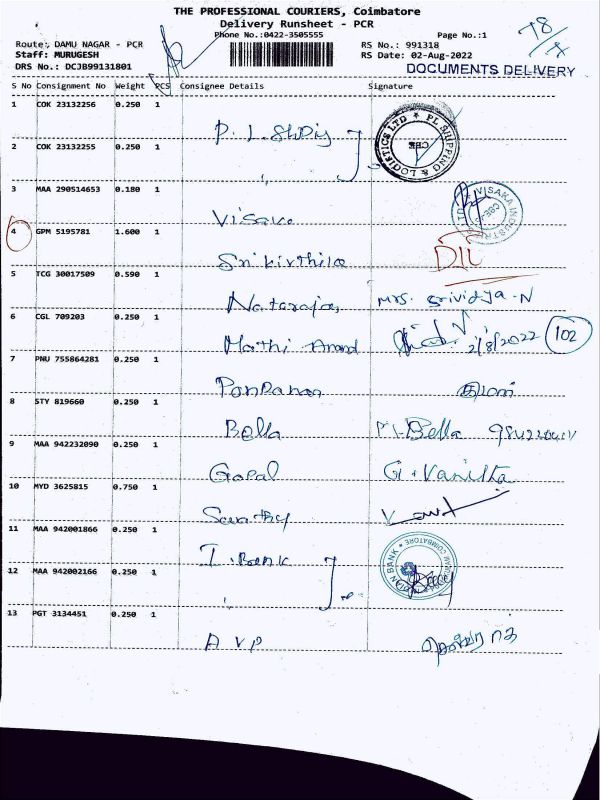 THE PROFESSIONAL COURIERS, Coimbatore
Delivery Runsheet - PCR
Phone No.:0422-3505555 Page No.:1
Route: DAMU NAGAR - PCR RS No.: 991318
Staff: MURUGESH RS Date: 02-Aug-2022
DRS No.: DCJB99131801 DOCUMENTS DELIVERY
S No Consignment No Weight PCS Consignee Details Signature
1 COK 23132256 0.250 1
2 COK 23132255 0.250 1
PL SHIPPING & LOGISTICS LTD CBE
3 MAA 290514653 0.180 1
Visaka VISAKA INDUSTRIES
4 GPM 5195781 1.600 1
Srikirthika
5 TCG 30017509 0.590 1
Natarajan Mrs. Srividya.N
6 CGL 709203 0.250 1
Mathi Anand 2/8/2022 102
7 PNU 755864281 0.250 1
8 STY 819660 0.250 1
Bella Bella
9 MAA 942232090 0.250 1
Gopal G. Vanitha
10 MYD 3625815 0.750 1
11 MAA 942001866 0.250 1
I. Bank
12 MAA 942002166 0.250 1
13 PGT 3134451 0.250 1
A VP